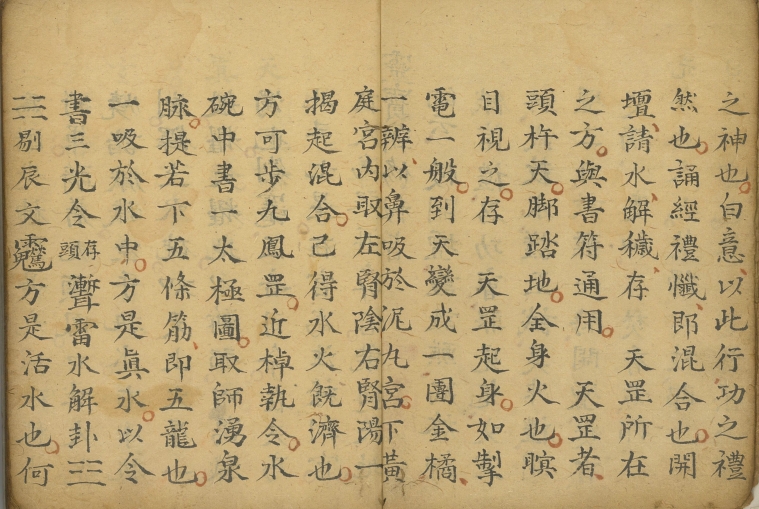 之神也。白意、以此行功之禮
然也。誦經禮懺、即混合也。開
壇、請水解穢、存 天罡所在
之方。與書符通用。 天罡者、
頭杵天。脚踏地。全身火也。瞑
目視之。存 天罡起身。如掣
電一般。到天變成一團金橘、
一辦、以鼻吸於泥九宮。下黃
庭宮內取左腎陰右腎陽一
揭起混合。己得水火旣濟也。
方可步九鳳罡。近棹執令水
碗中書一太極圖。取師湧泉
脉。提若下五條筋、即五龍也。
一吸於水中。方是眞水。以令
書三光令存頭雷水解卦
剔辰文方是活水也。何